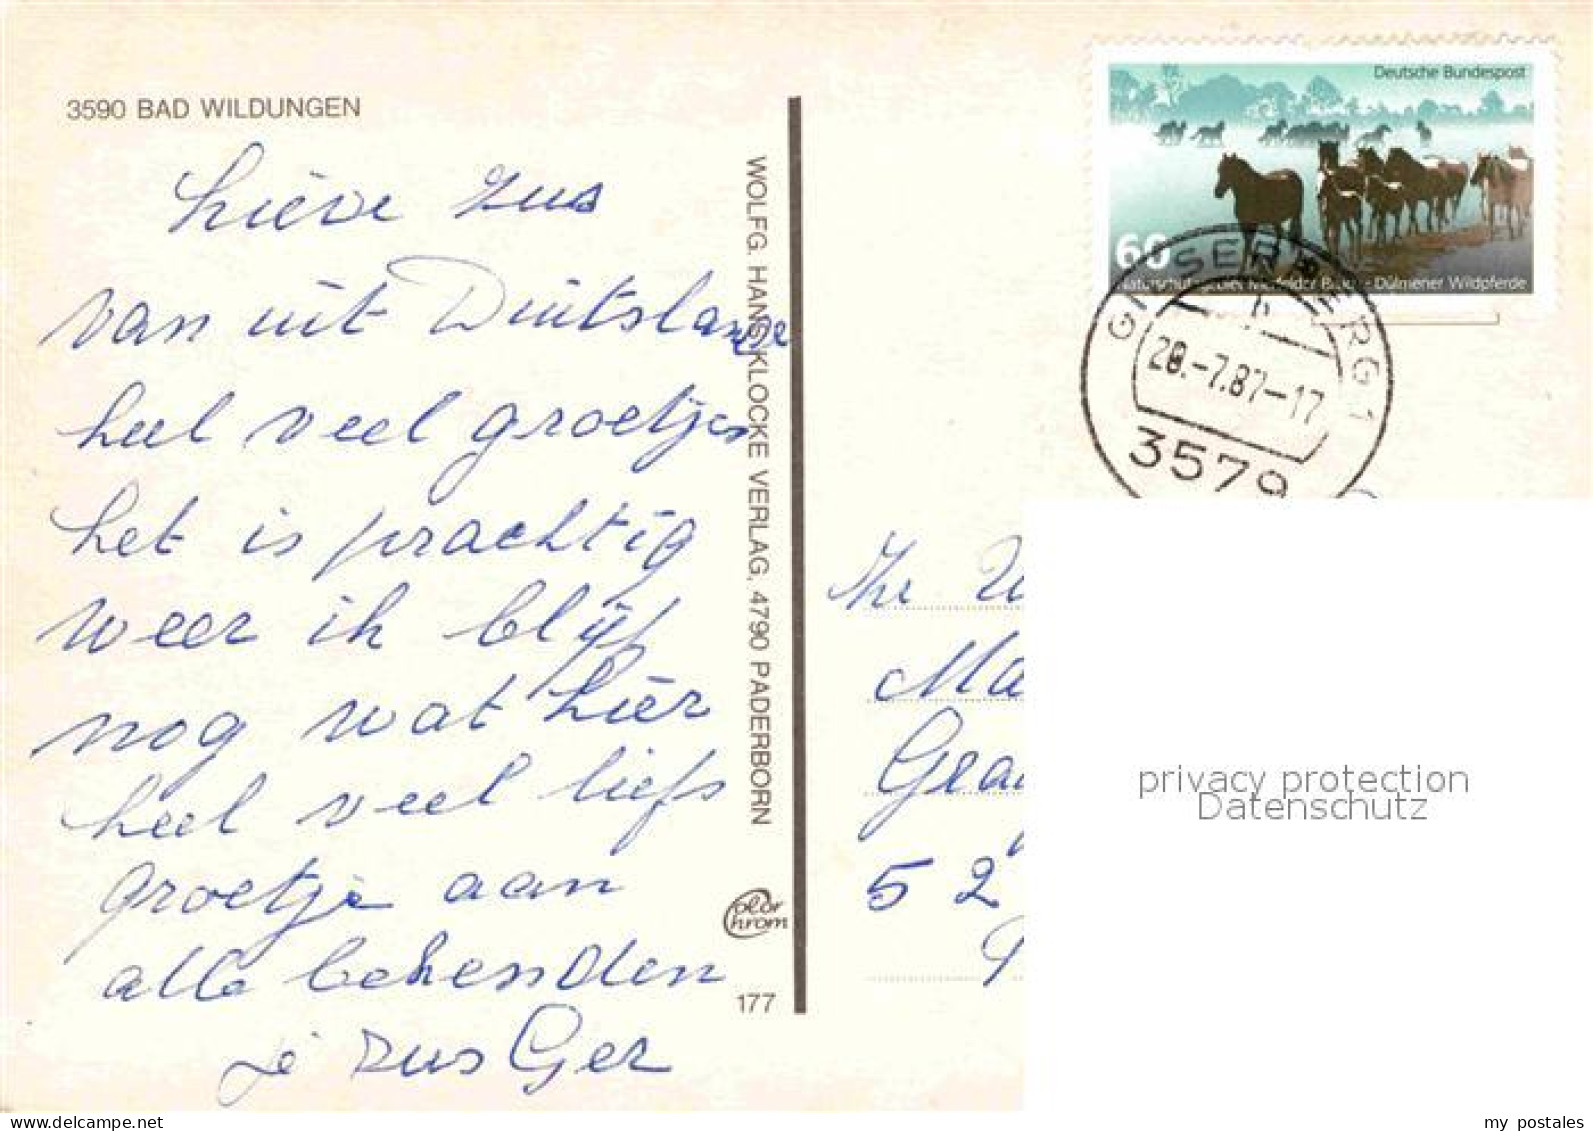 3590 BAD WILDUNGEN
Lieve zus
van uit Duitslande
heel veel groetjes
het is prachtig
weer ik blijf
nog wat hier
heel veel liefs
groetje aan
alle bekenden
je zus Ger
WOLFG. HANS KLOCKE VERLAG, 4790 PADERBORN
Color
Chrom
177
Deutsche Bundespost
60
Naturschutzgebiet Merfelder Bruch - Dülmener Wildpferde
GILSERBERG 1
b
28.-7.87-17
3579
Ma
Gea
52
privacy protection
Datenschutz
my postales